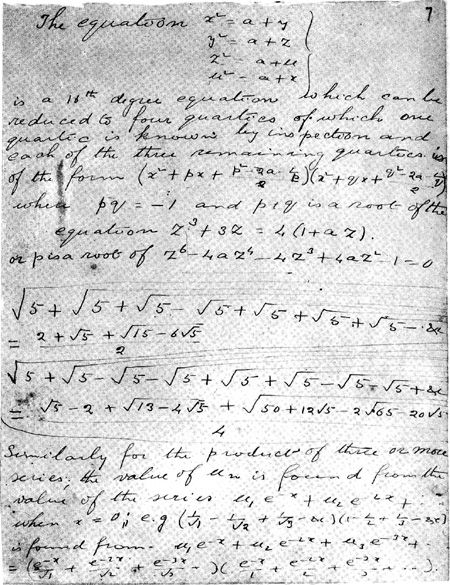 7
The equation x² = a + y
y² = a + z
z² = a + u
u² = a + x
is a 16th degree equation which can be
reduced to four quartics of which one
quartic is known by inspection and
each of the three remaining quartics is
of the form (x² + px + (p² - 2a)/2 - 1/p)(x² + qx + (q² - 2a)/2 - 1/q)
where pq = -1 and p+q is a root of the
equation z³ + 3z = 4(1 + az).
or p is a root of z⁶ - 4az⁴ - 4z³ + 4az² - 1 = 0
√5 + √5 + √5 - √5 + √5 + √5 + √5 - &c
= (2 + √5 + √15 - 6√5)/2
√5 + √5 - √5 - √5 + √5 + √5 - √5 - √5 + &c
= (√5 - 2 + √13 - 4√5 + √50 + 12√5 - 2√65 - 20√5)/4
Similarly for the product of three or more
series; the value of un is found from the
value of the series u₁e⁻ˣ + u₂e⁻²ˣ +
when x = 0; e.g (1/√1 - 1/√2 + 1/√3 - &c)(1 - 1/2 + 1/3 - &c)
is found from u₁e⁻ˣ + u₂e⁻²ˣ + u₃e⁻³ˣ +
= (e⁻ˣ/√1 + e⁻²ˣ/√2 + e⁻³ˣ/√3 ··)(e⁻ˣ/1 + e⁻²ˣ/2 + e⁻³ˣ/3 + ··).